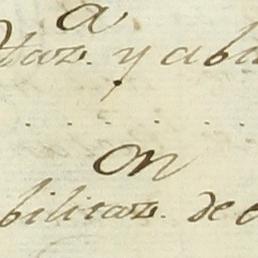 a
y aba
on
bilitaz. de